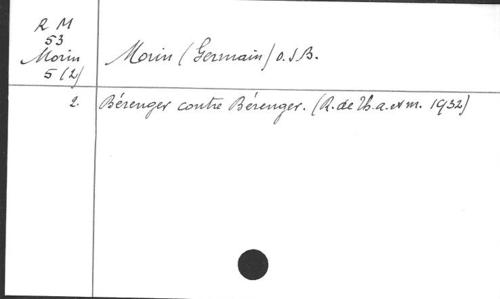 R M
53
Morin
5 (2)
Morin (Germain) O.S.B.
2. Bérenger contre Bérenger. (R. de Th. a. et m. 1932)